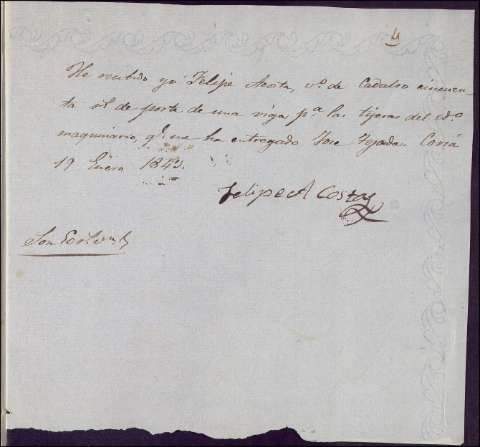 4
He recibido yo Felipe Acosta, vº. de Cadalso cincuen-
ta rs. de porte de una viga pª. las tijeras del edº
maquinario, qe. me ha entregado Jose Tejadas Coriá
19 Enero 1843.
Felipe A Costa
Son 50 rs. vn